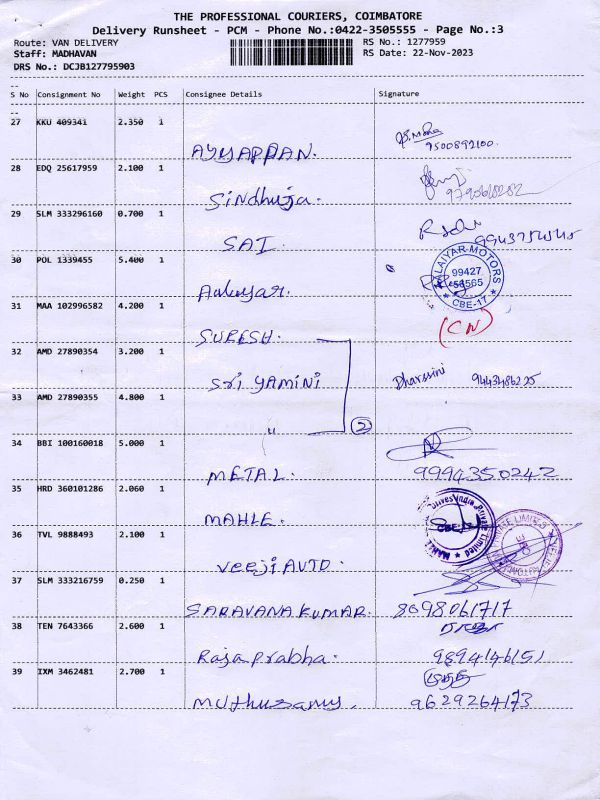 THE PROFESSIONAL COURIERS, COIMBATORE
Delivery Runsheet - PCM - Phone No.:0422-3505555 - Page No.:3
Route: VAN DELIVERY
RS No.: 1277959
Staff: MADHAVAN
RS Date: 22-Nov-2023
DRS No.: DCJB127795903
S No Consignment No Weight PCS Consignee Details Signature
27 KKU 409341 2.350 1
AYYAPPAN. 9500892100.
28 EDQ 25617959 2.100 1
Sindhuja.
29 SLM 333296160 0.700 1
SAI
30 POL 1339455 5.400 1
MOTORS
99427
CBE-17
31 MAA 102996582 4.200 1
SURESH. (CN)
32 AMD 27890354 3.200 1
Sri YAMINI Dharsini
33 AMD 27890355 4.800 1
" 2
34 BBI 100160018 5.000 1
METAL. 9994350242
35 HRD 360101286 2.060 1
MAHLE.
36 TVL 9888493 2.100 1
Veeji AUTO.
37 SLM 333216759 0.250 1
SARAVANA KUMAR. 8098061717
38 TEN 7643366 2.600 1
Raja prabha. 9894146151
39 IXM 3462481 2.700 1
Muthusamy. 9629264173